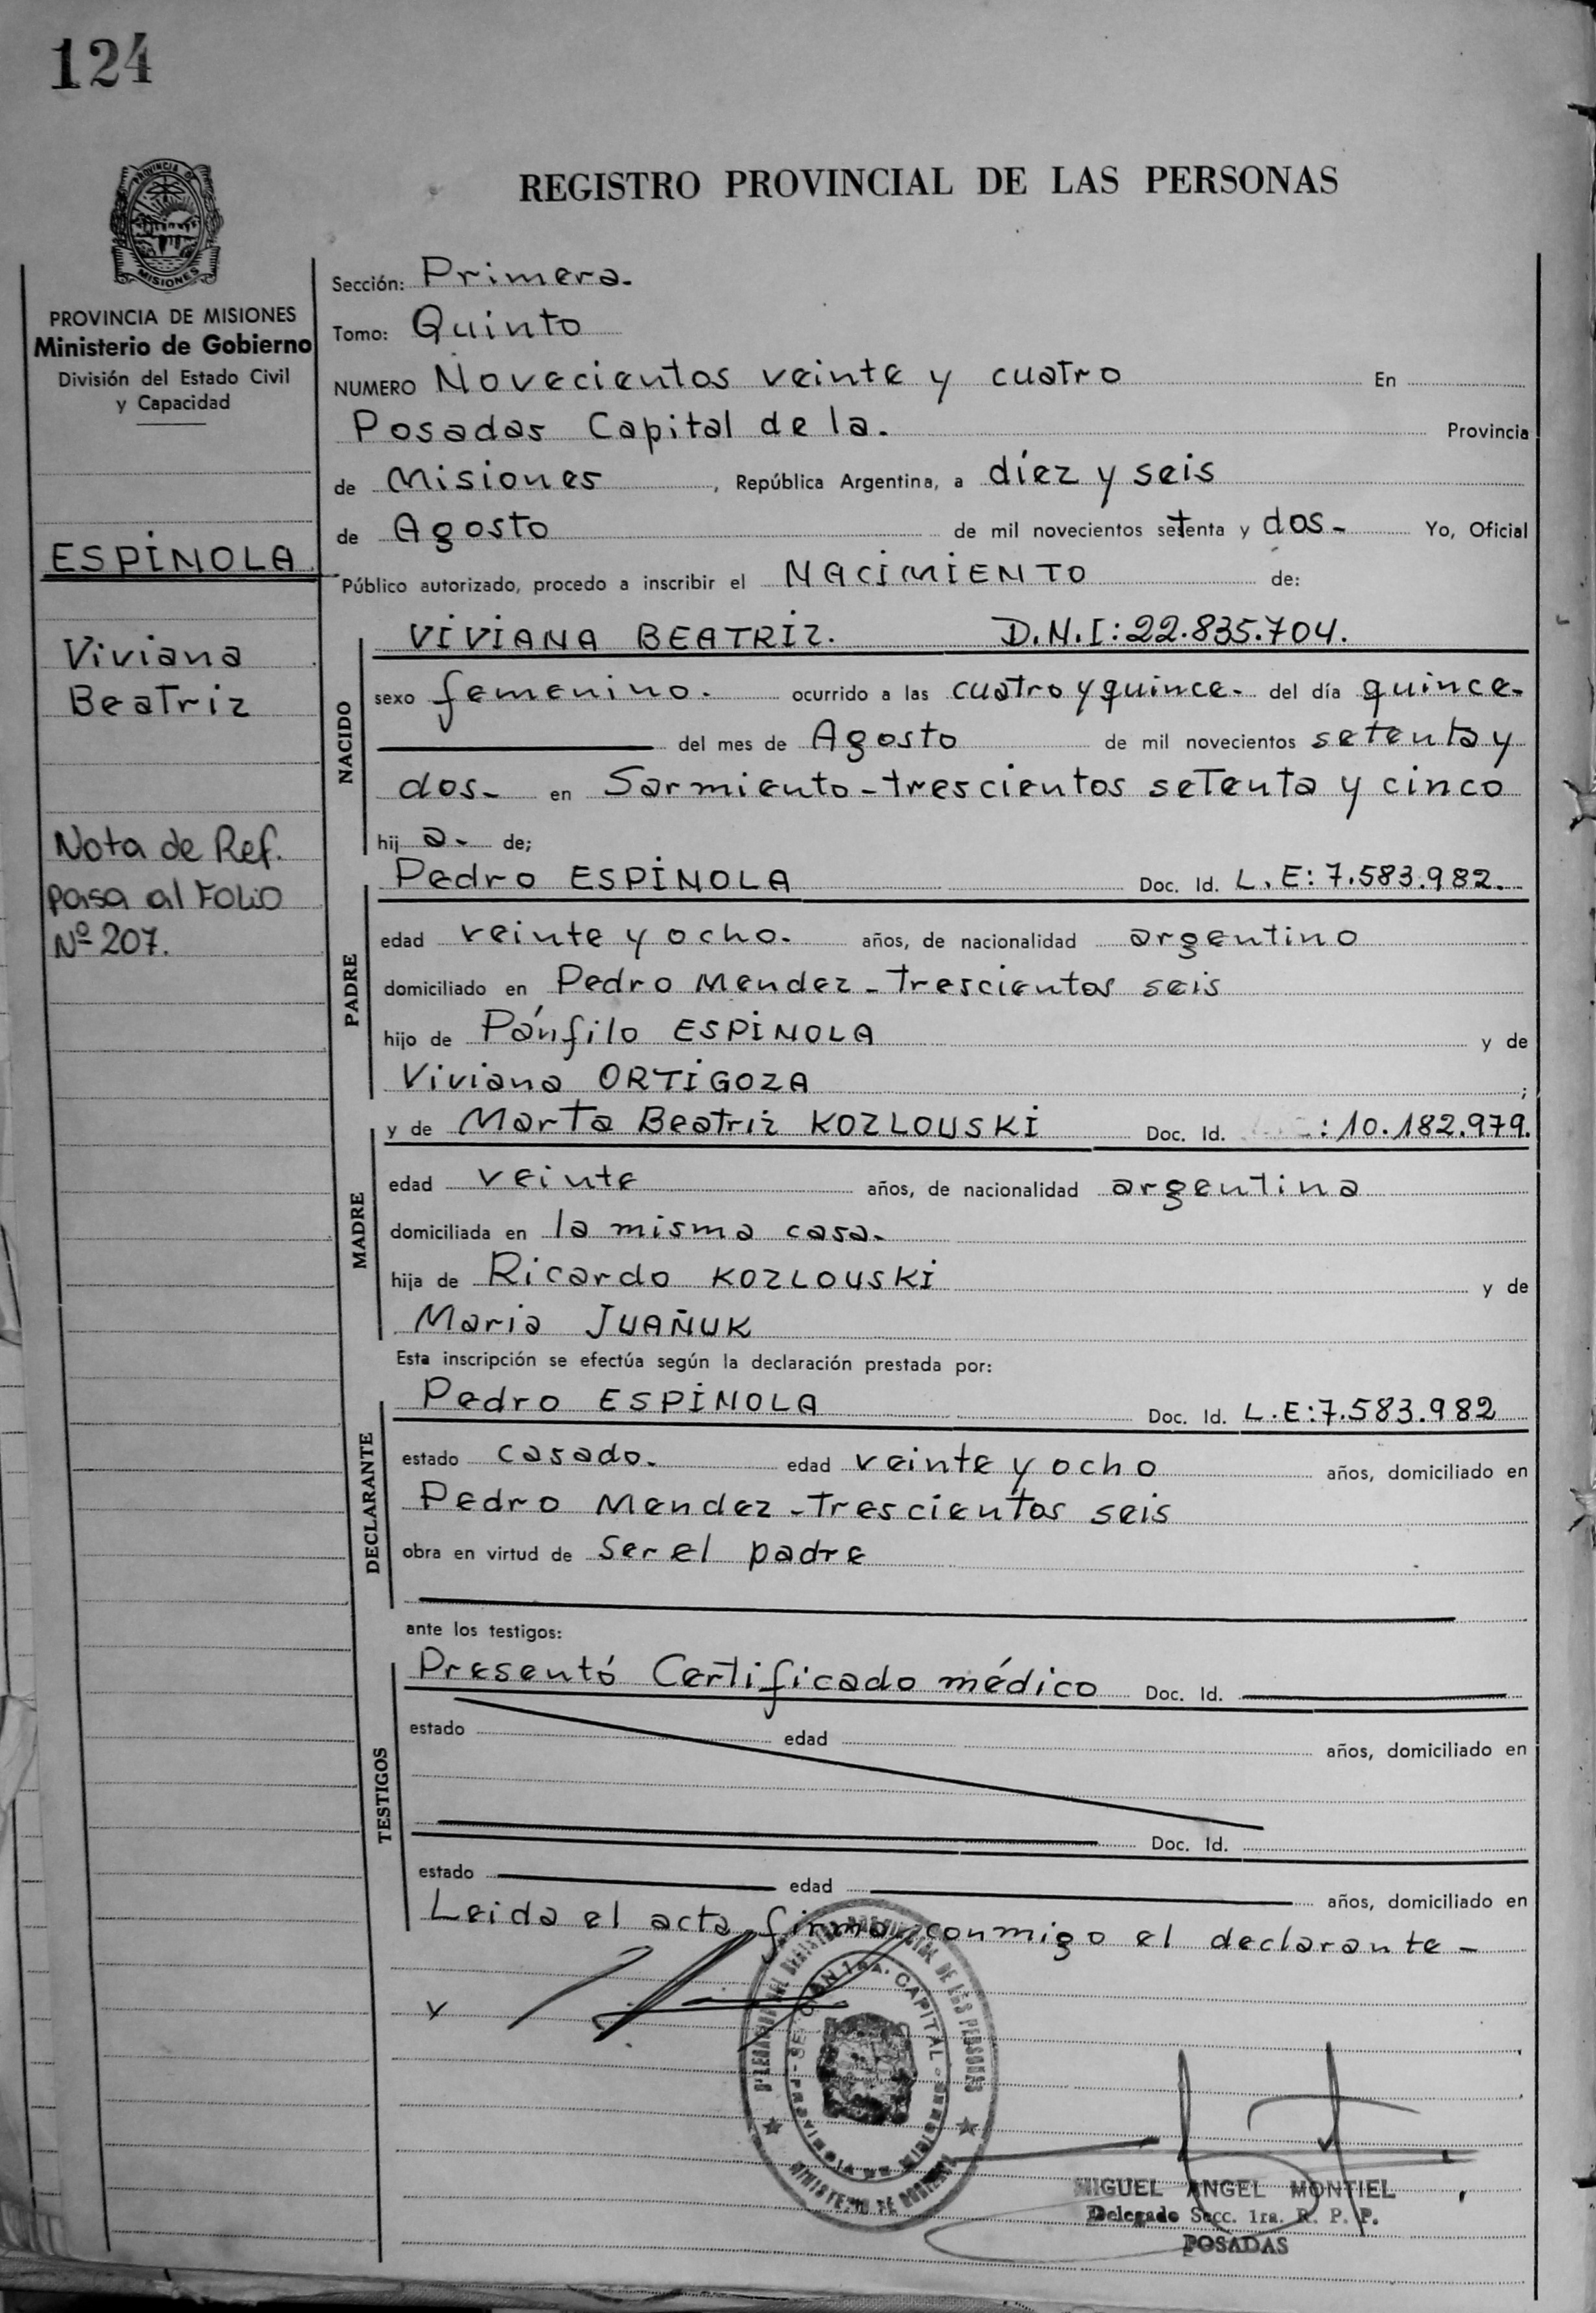 124
PROVINCIA DE MISIONES
REGISTRO PROVINCIAL DE LAS PERSONAS
PROVINCIA DE MISIONES
Ministerio de Gobierno
División del Estado Civil
y Capacidad
ESPINOLA
Viviana
Beatriz
Nota de Ref.
pasa al FOLiO
Nº 207.
Sección: Primera.
Tomo: Quinto
NUMERO Novecientos veinte y cuatro En
Posadas Capital de la. Provincia
de Misiones, República Argentina, a diez y seis
de Agosto de mil novecientos setenta y dos- Yo, Oficial
Público autorizado, procedo a inscribir el NACIMIENTO de:
NACIDO
VIVIANA BEATRIZ. D.N.I: 22.835.704.
sexo femenino. ocurrido a las cuatro y quince- del día quince-
del mes de Agosto de mil novecientos setenta y
dos- en Sarmiento-trescientos setenta y cinco
hij a- de;
PADRE
Pedro ESPINOLA Doc. Id. L.E: 7.583.982.
edad veinte y ocho. años, de nacionalidad argentino
domiciliado en Pedro Mendez-Trescientos seis
hijo de Pánfilo ESPINOLA y de
Viviana ORTIGOZA ;
MADRE
y de Marta Beatriz KOZLOUSKI Doc. Id. : 10.182.979.
edad veinte años, de nacionalidad argentina
domiciliada en la misma casa-
hija de Ricardo KOZLOUSKI y de
Maria JUAÑUK
Esta inscripción se efectúa según la declaración prestada por:
DECLARANTE
Pedro ESPINOLA Doc. Id. L.E: 7.583.982
estado casado. edad veinte y ocho años, domiciliado en
Pedro Mendez-Trescientos seis
obra en virtud de Ser el padre
ante los testigos:
TESTIGOS
Presentó Certificado médico Doc. Id.
estado edad años, domiciliado en
Doc. Id.
estado edad años, domiciliado en
Leida el acta, firma conmigo el declarante-
DE LAS PERSONAS
SECCION 1ra. CAPITAL
PROVINCIA DE MISIONES
MINISTERIO DE GOBIERNO
MIGUEL ANGEL MONTIEL
Delegado Secc. 1ra. R. P. P.
POSADAS